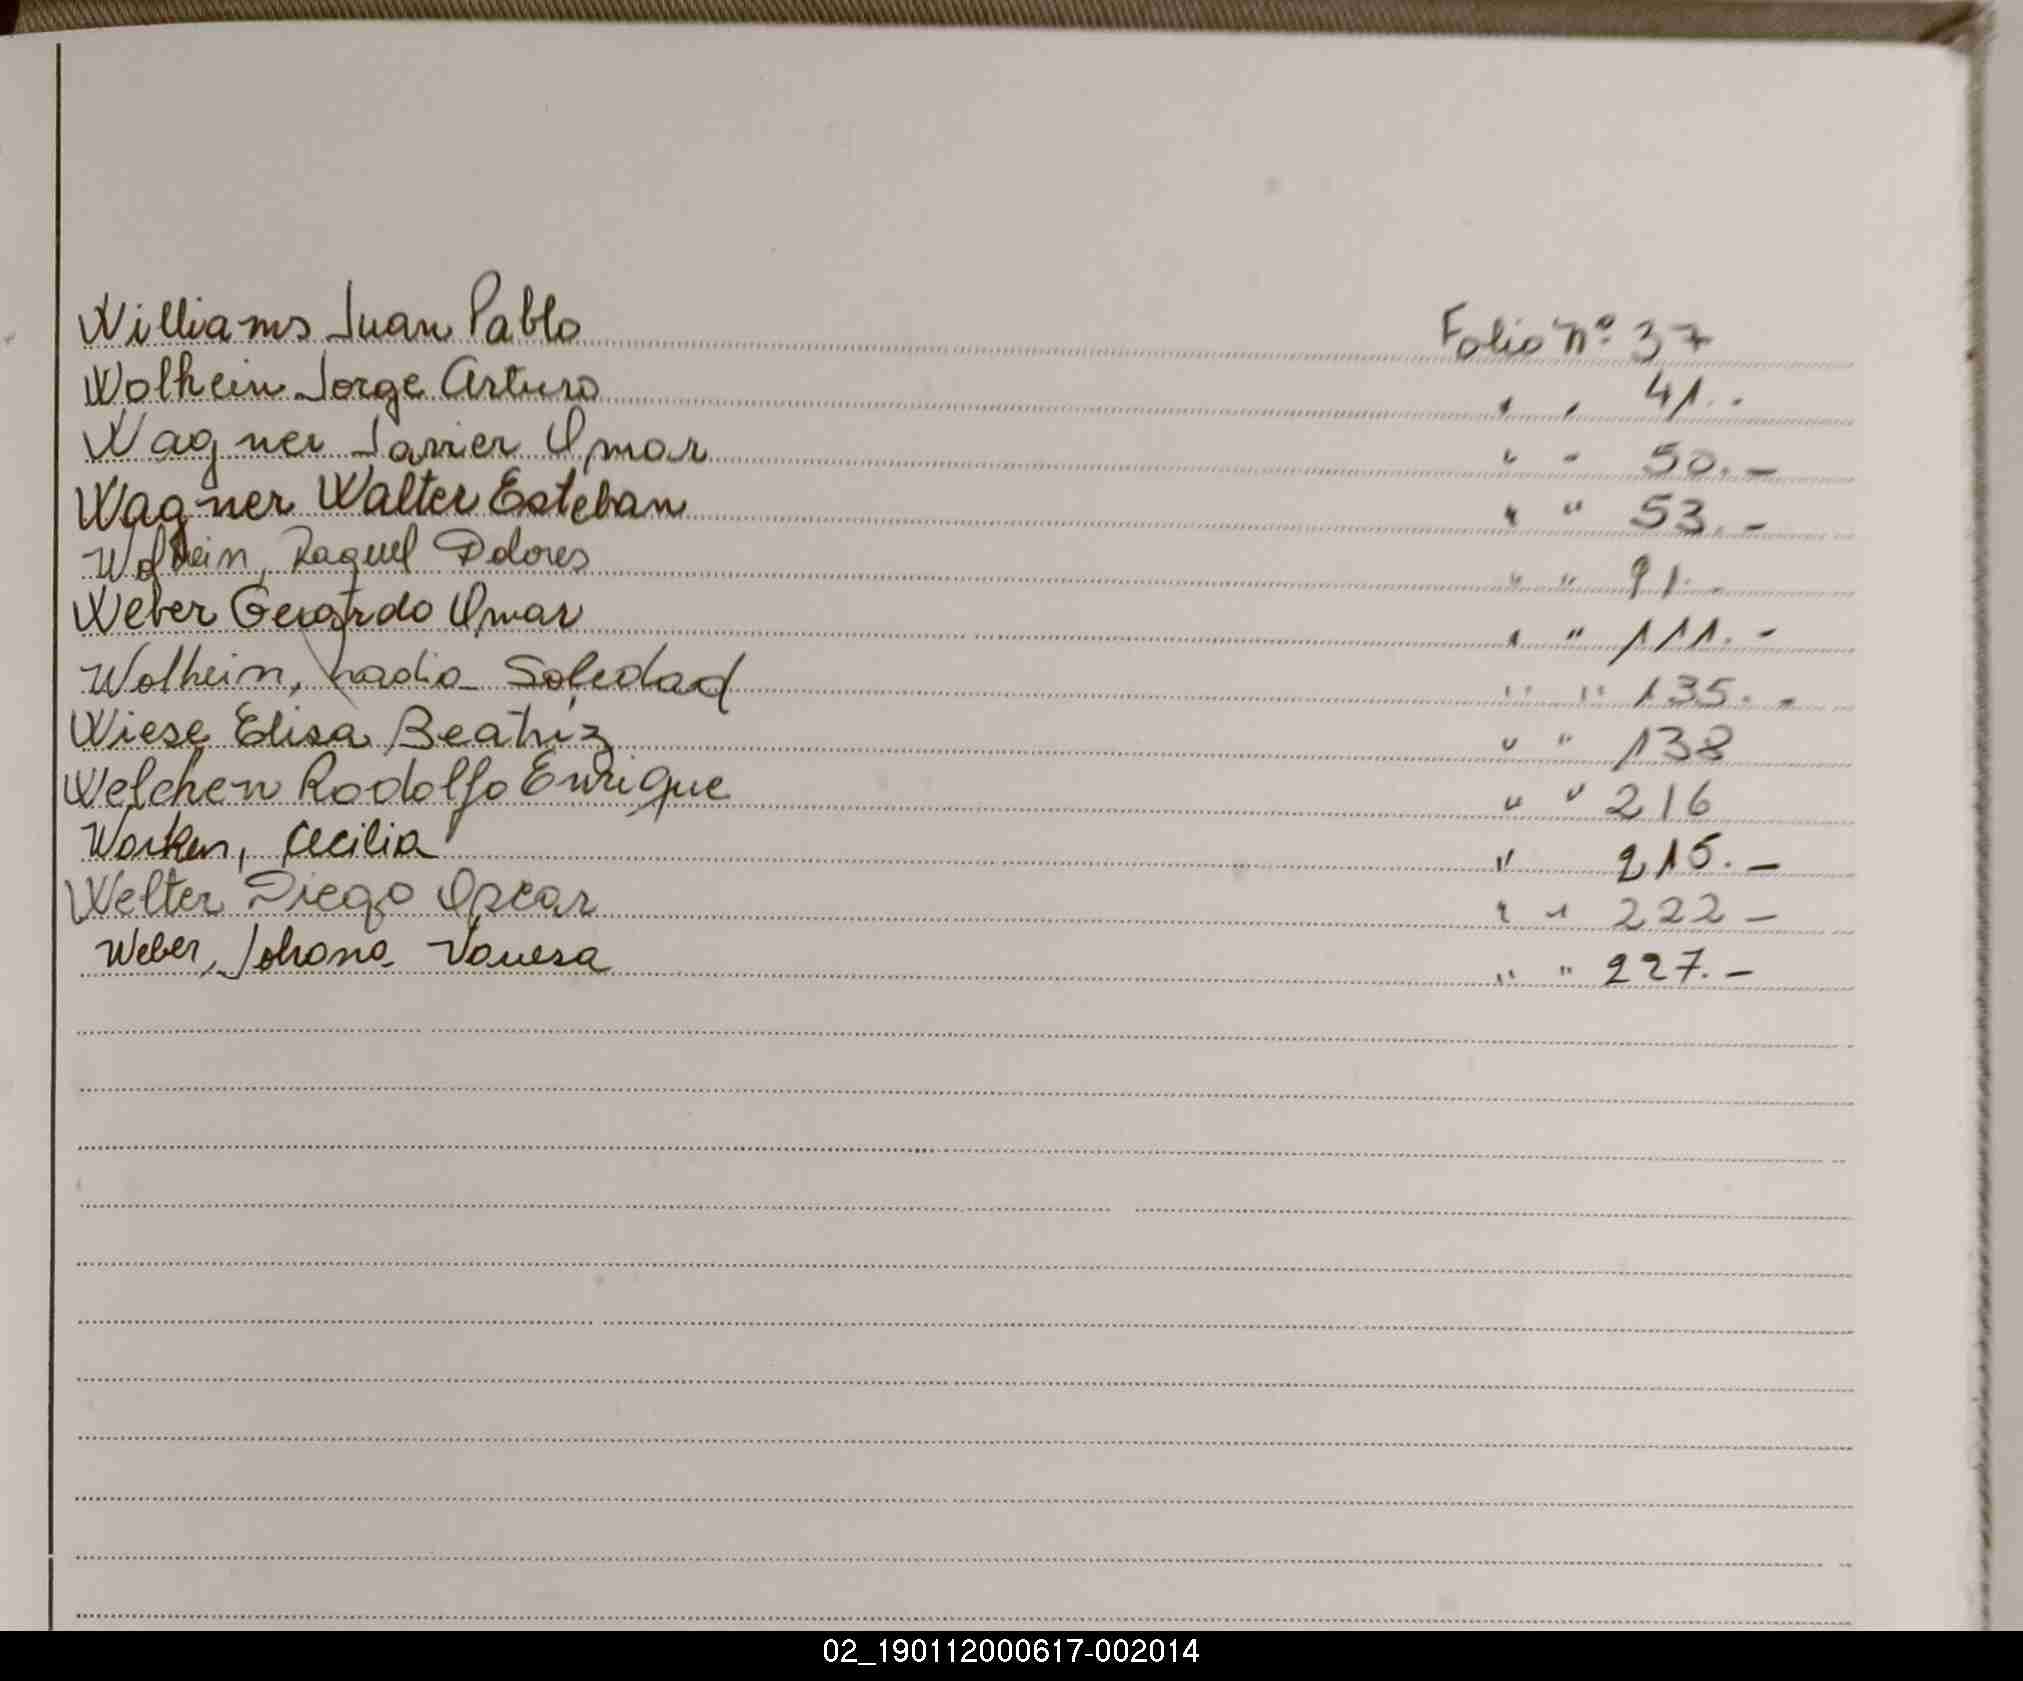 Williams Juan Pablo Folio Nº 37
Wolhein Jorge Arturo " " 41.-
Wagner Javier Omar " " 50.-
Wagner Walter Esteban " " 53.-
Wolhein, Raquel Dolores " " 91.-
Weber Gerardo Omar " " 111.-
Wolhein, Nadia Soledad " " 135.-
Wiese Elisa Beatriz " " 138
Welchen Rodolfo Enrique " " 216
Worken, Cecilia " 215.-
Welter Diego Oscar " " 222-
Weber, Johana Vanesa " " 227.-
02_190112000617-002014